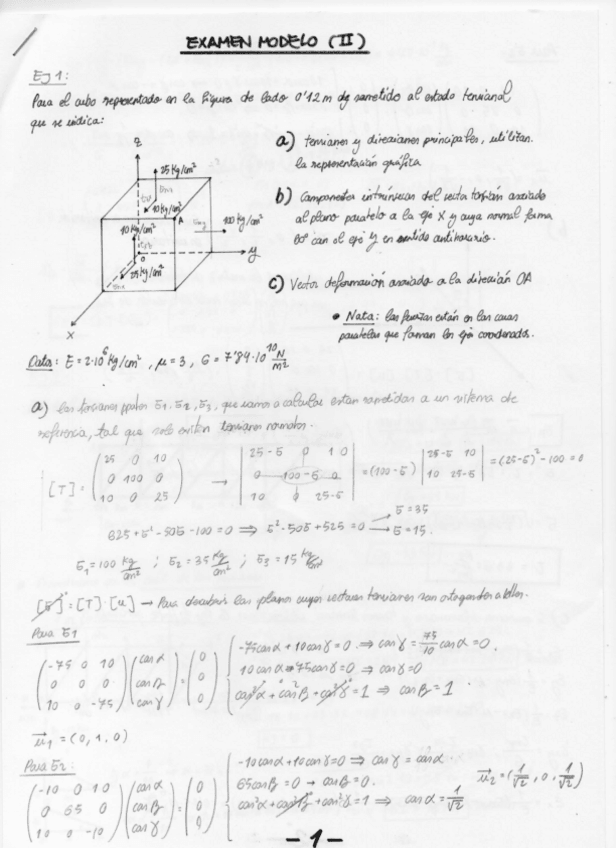 EXAMEN MODELO (II)
Ej 1:
Para el cubo representado en la figura de lado 0'12 m dg sometido al estado tensional
que se indica:
z
25 Kg/cm²
10 Kg/cm²
A
10 Kg/cm²
100 Kg/cm²
O
y
25 Kg/cm²
X
a) tensiones y direcciones principales, utilizan.
la representación gráfica
b) Componentes intrínsecas del vector tensión asociado
al plano paralelo a la eje X y cuya normal forma
60° con el eje y en sentido antihorario.
c) Vector deformación asociado a la dirección OA
• Nota: las fuerzas están en las caras
paralelas que forman los eje coordenados.
Datos: E = 2·10⁶ Kg/cm², μ = 3, G = 7'84·10¹⁰ N/m²
a) las tensiones ppales σ1, σ2, σ3, que vamos a calcular están sometidas a un sistema de
referencia, tal que solo existen tensiones normales.
[T] = (25 0 10
0 100 0
10 0 25) → |25-σ 0 10
0 100-σ 0
10 0 25-σ| = (100-σ) |25-σ 10
10 25-σ| = (25-σ)² - 100 = 0
625 + σ² - 50σ - 100 = 0 ⇒ σ² - 50σ + 525 = 0 → σ = 35
→ σ = 15.
σ1 = 100 Kg/cm² ; σ2 = 35 Kg/cm² ; σ3 = 15 Kg/cm²
[σ]° = [T]·[u] → Para descubrir los planos cuyos vectores tensiones son ortogonales a ellos.
Para σ1
(-75 0 10
0 0 0
10 0 -75) (cos α
cos β
cos γ) = (0
0
0)
-75cos α + 10cos γ = 0. ⇒ cos γ = 75/10 cos α = 0.
10 cos α - 75cos γ = 0 ⇒ cos γ = 0
cos²α + cos²β + cos²γ = 1 ⇒ cos β = 1
u1 = (0, 1, 0)
Para σ2:
(-10 0 10
0 65 0
10 0 -10) (cos α
cos β
cos γ) = (0
0
0)
-10cos α + 10cos γ = 0 ⇒ cos γ = cos α
65cos β = 0 → cos β = 0.
cos²α + cos²β + cos²γ = 1 ⇒ cos α = 1/√2
u2 = (1/√2, 0, 1/√2)
- 1 -